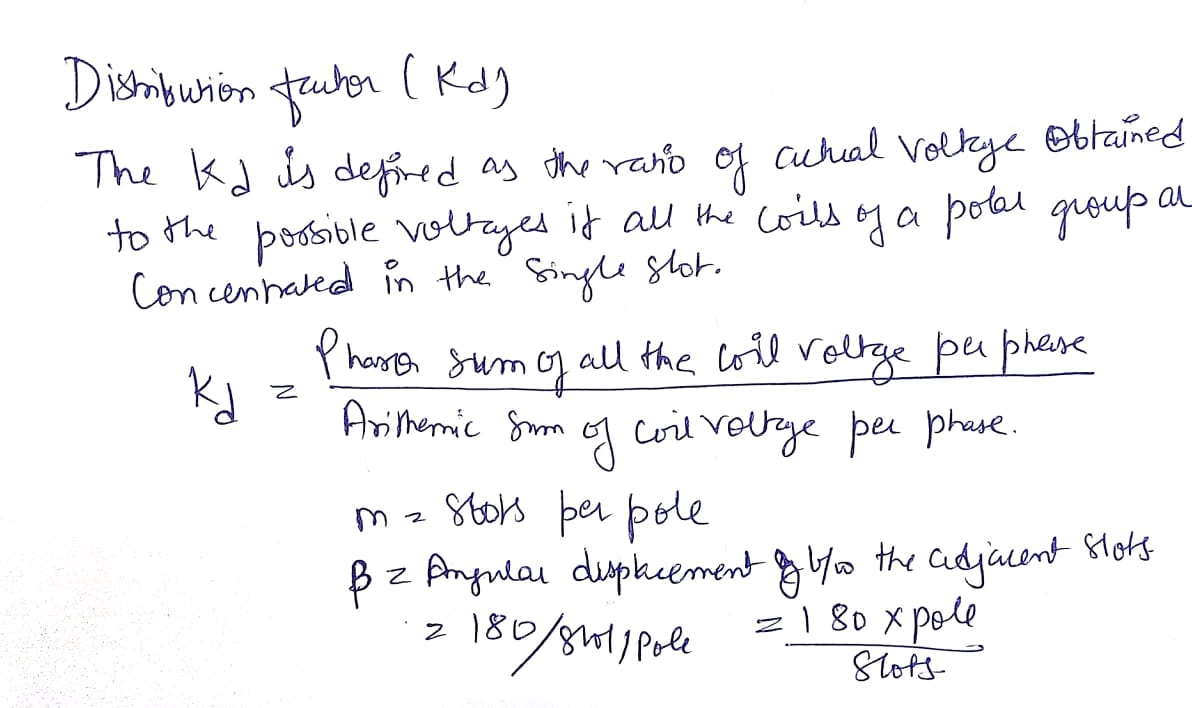 Distribution factor (Kd)
The Kd is defined as the ratio of actual voltage Obtained
to the possible voltages if all the coils of a polar group ar
Concentrated in the Single slot.
Kd = Phasor sum of all the coil voltage per phase
Arithemic Sum of coil voltage per phase.
m = Slots per pole
β = Angular displacement b/w the adjacent Slots
= 180/slot/pole = 180 x pole
Slots